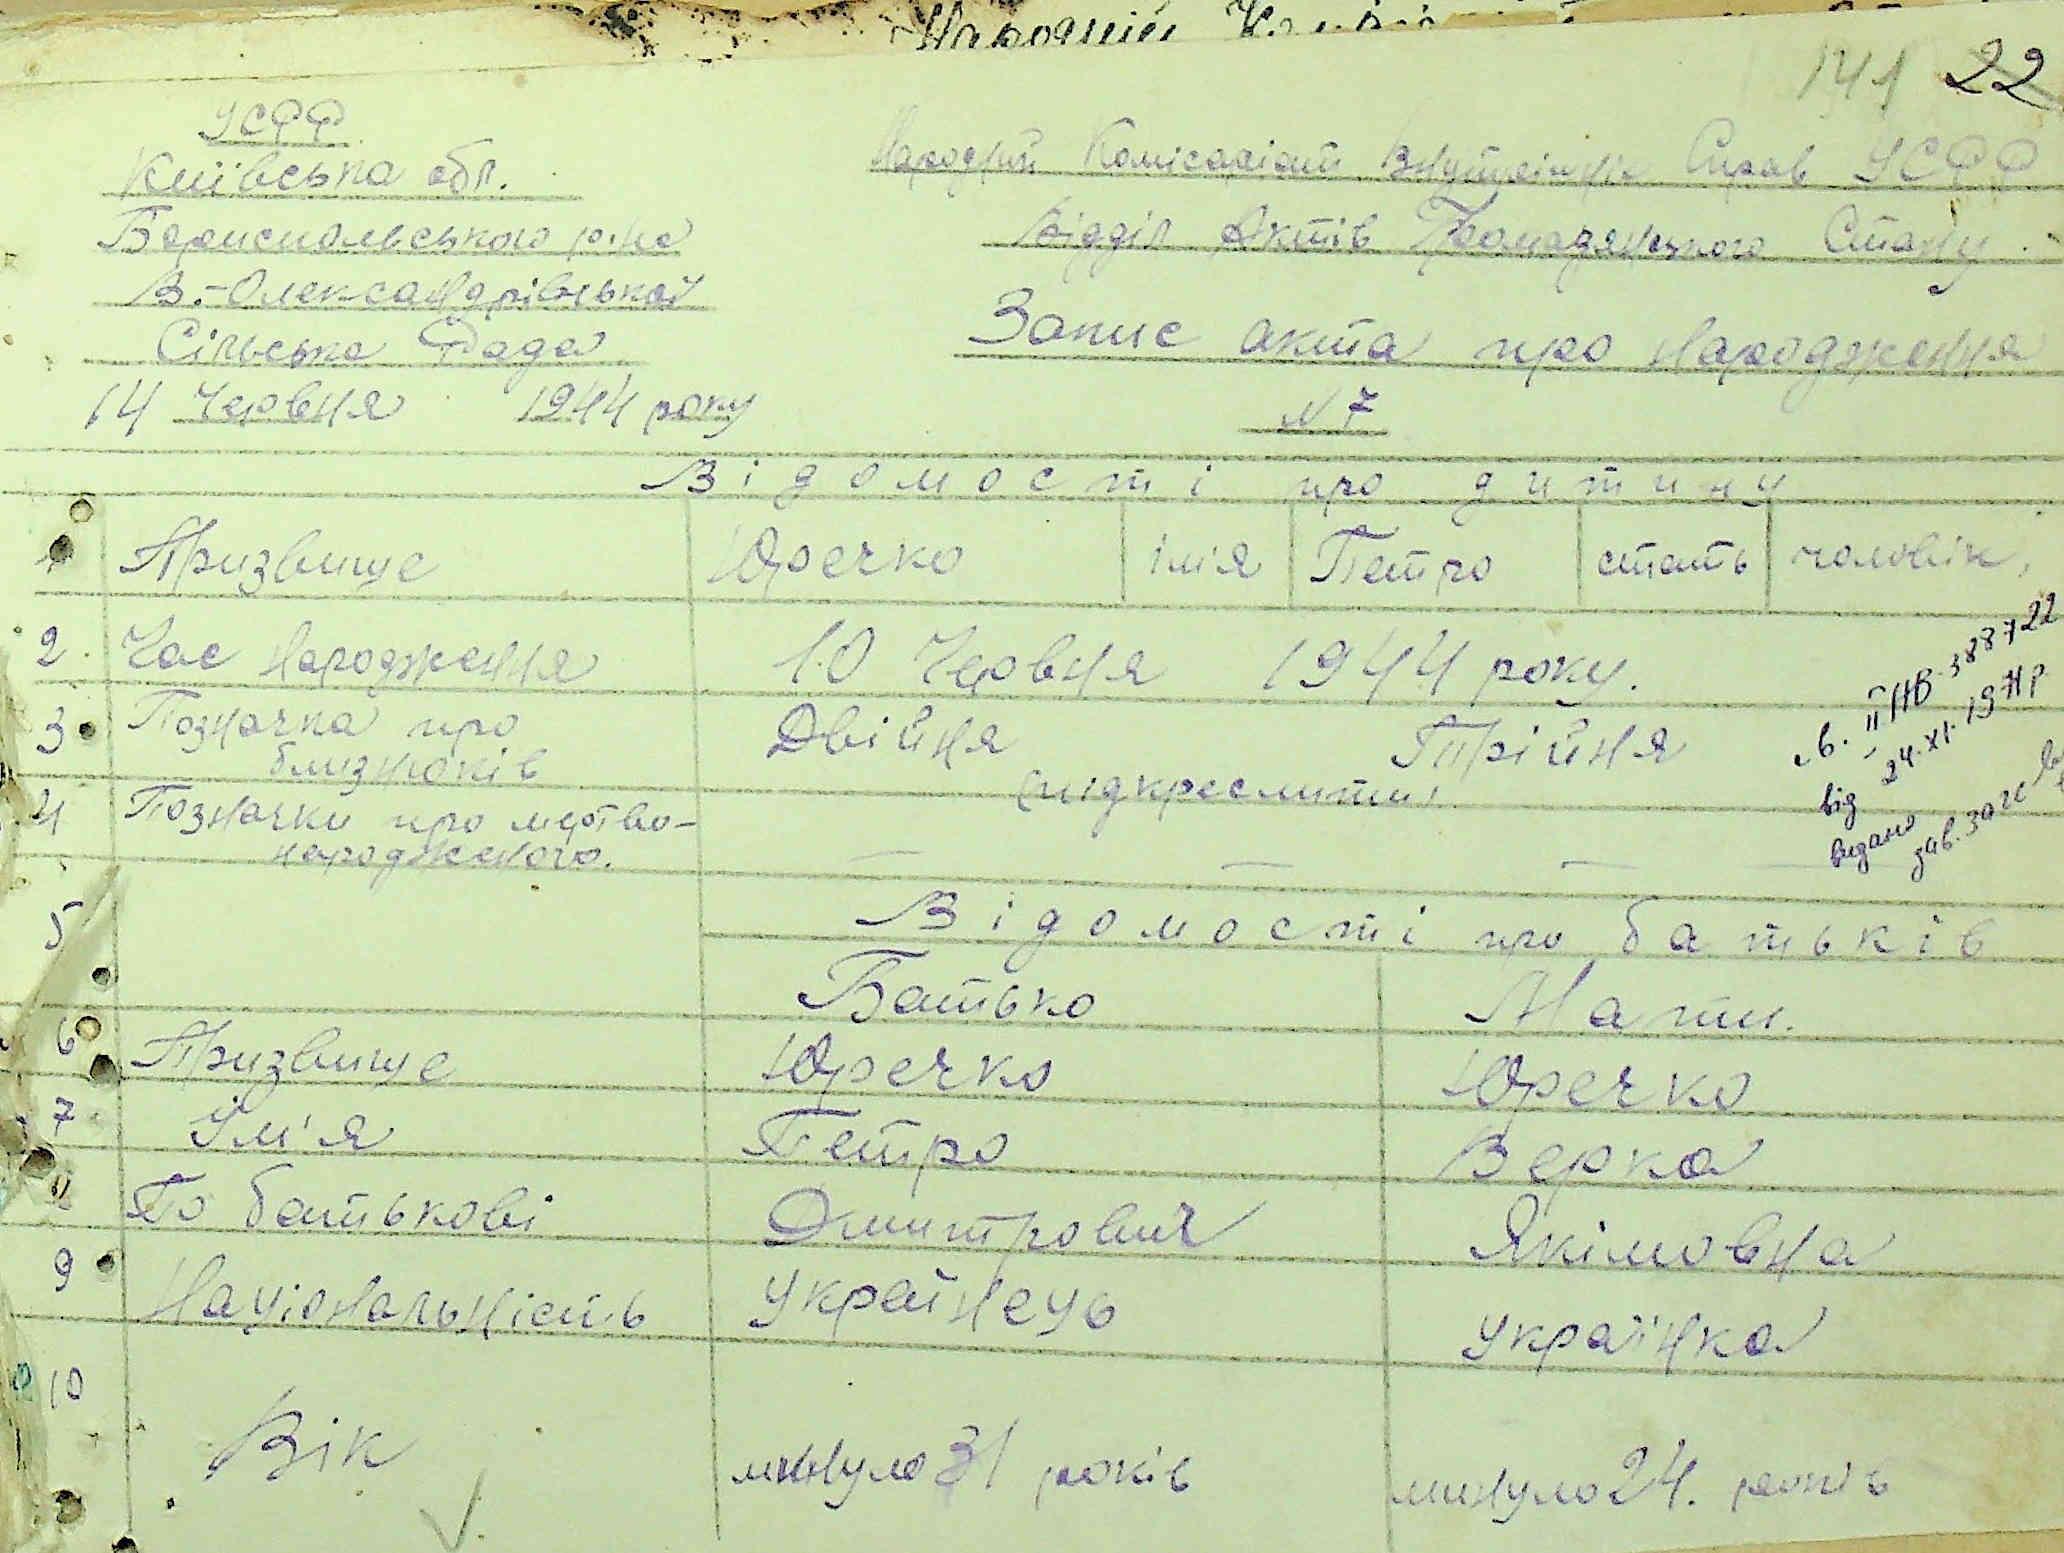 Народній
141 22
УСРР
Київська обл.
Бориспольського р-на
В.-Олександрівської
Сільська Рада
14 Червня 1944 року
Народний Комісаріат Внутрішніх Справ УСРР
Відділ Актів Громадянського Стану.
Запис акта про народження
N 7
Відомості про дитину
1 Призвище Юречко ім'я Петро стать чоловік.
2. Час народження 10 Червня 1944 року.
3 Позначка про близнюків Двійня Трійня
підкреслити
4 Позначки про мертво-
народженого. — — —
св. II НВ. 388722
від 24.XI.1974р.
видано зав. загс
5 Відомості про батьків
Батько Мати.
6 Призвище Юречко Юречко
7 Ім'я Петро Верка
По батькові Дмитрович Якімовна
9 Національність Українець Українка
10 Вік минуло 31 років минуло 24. років